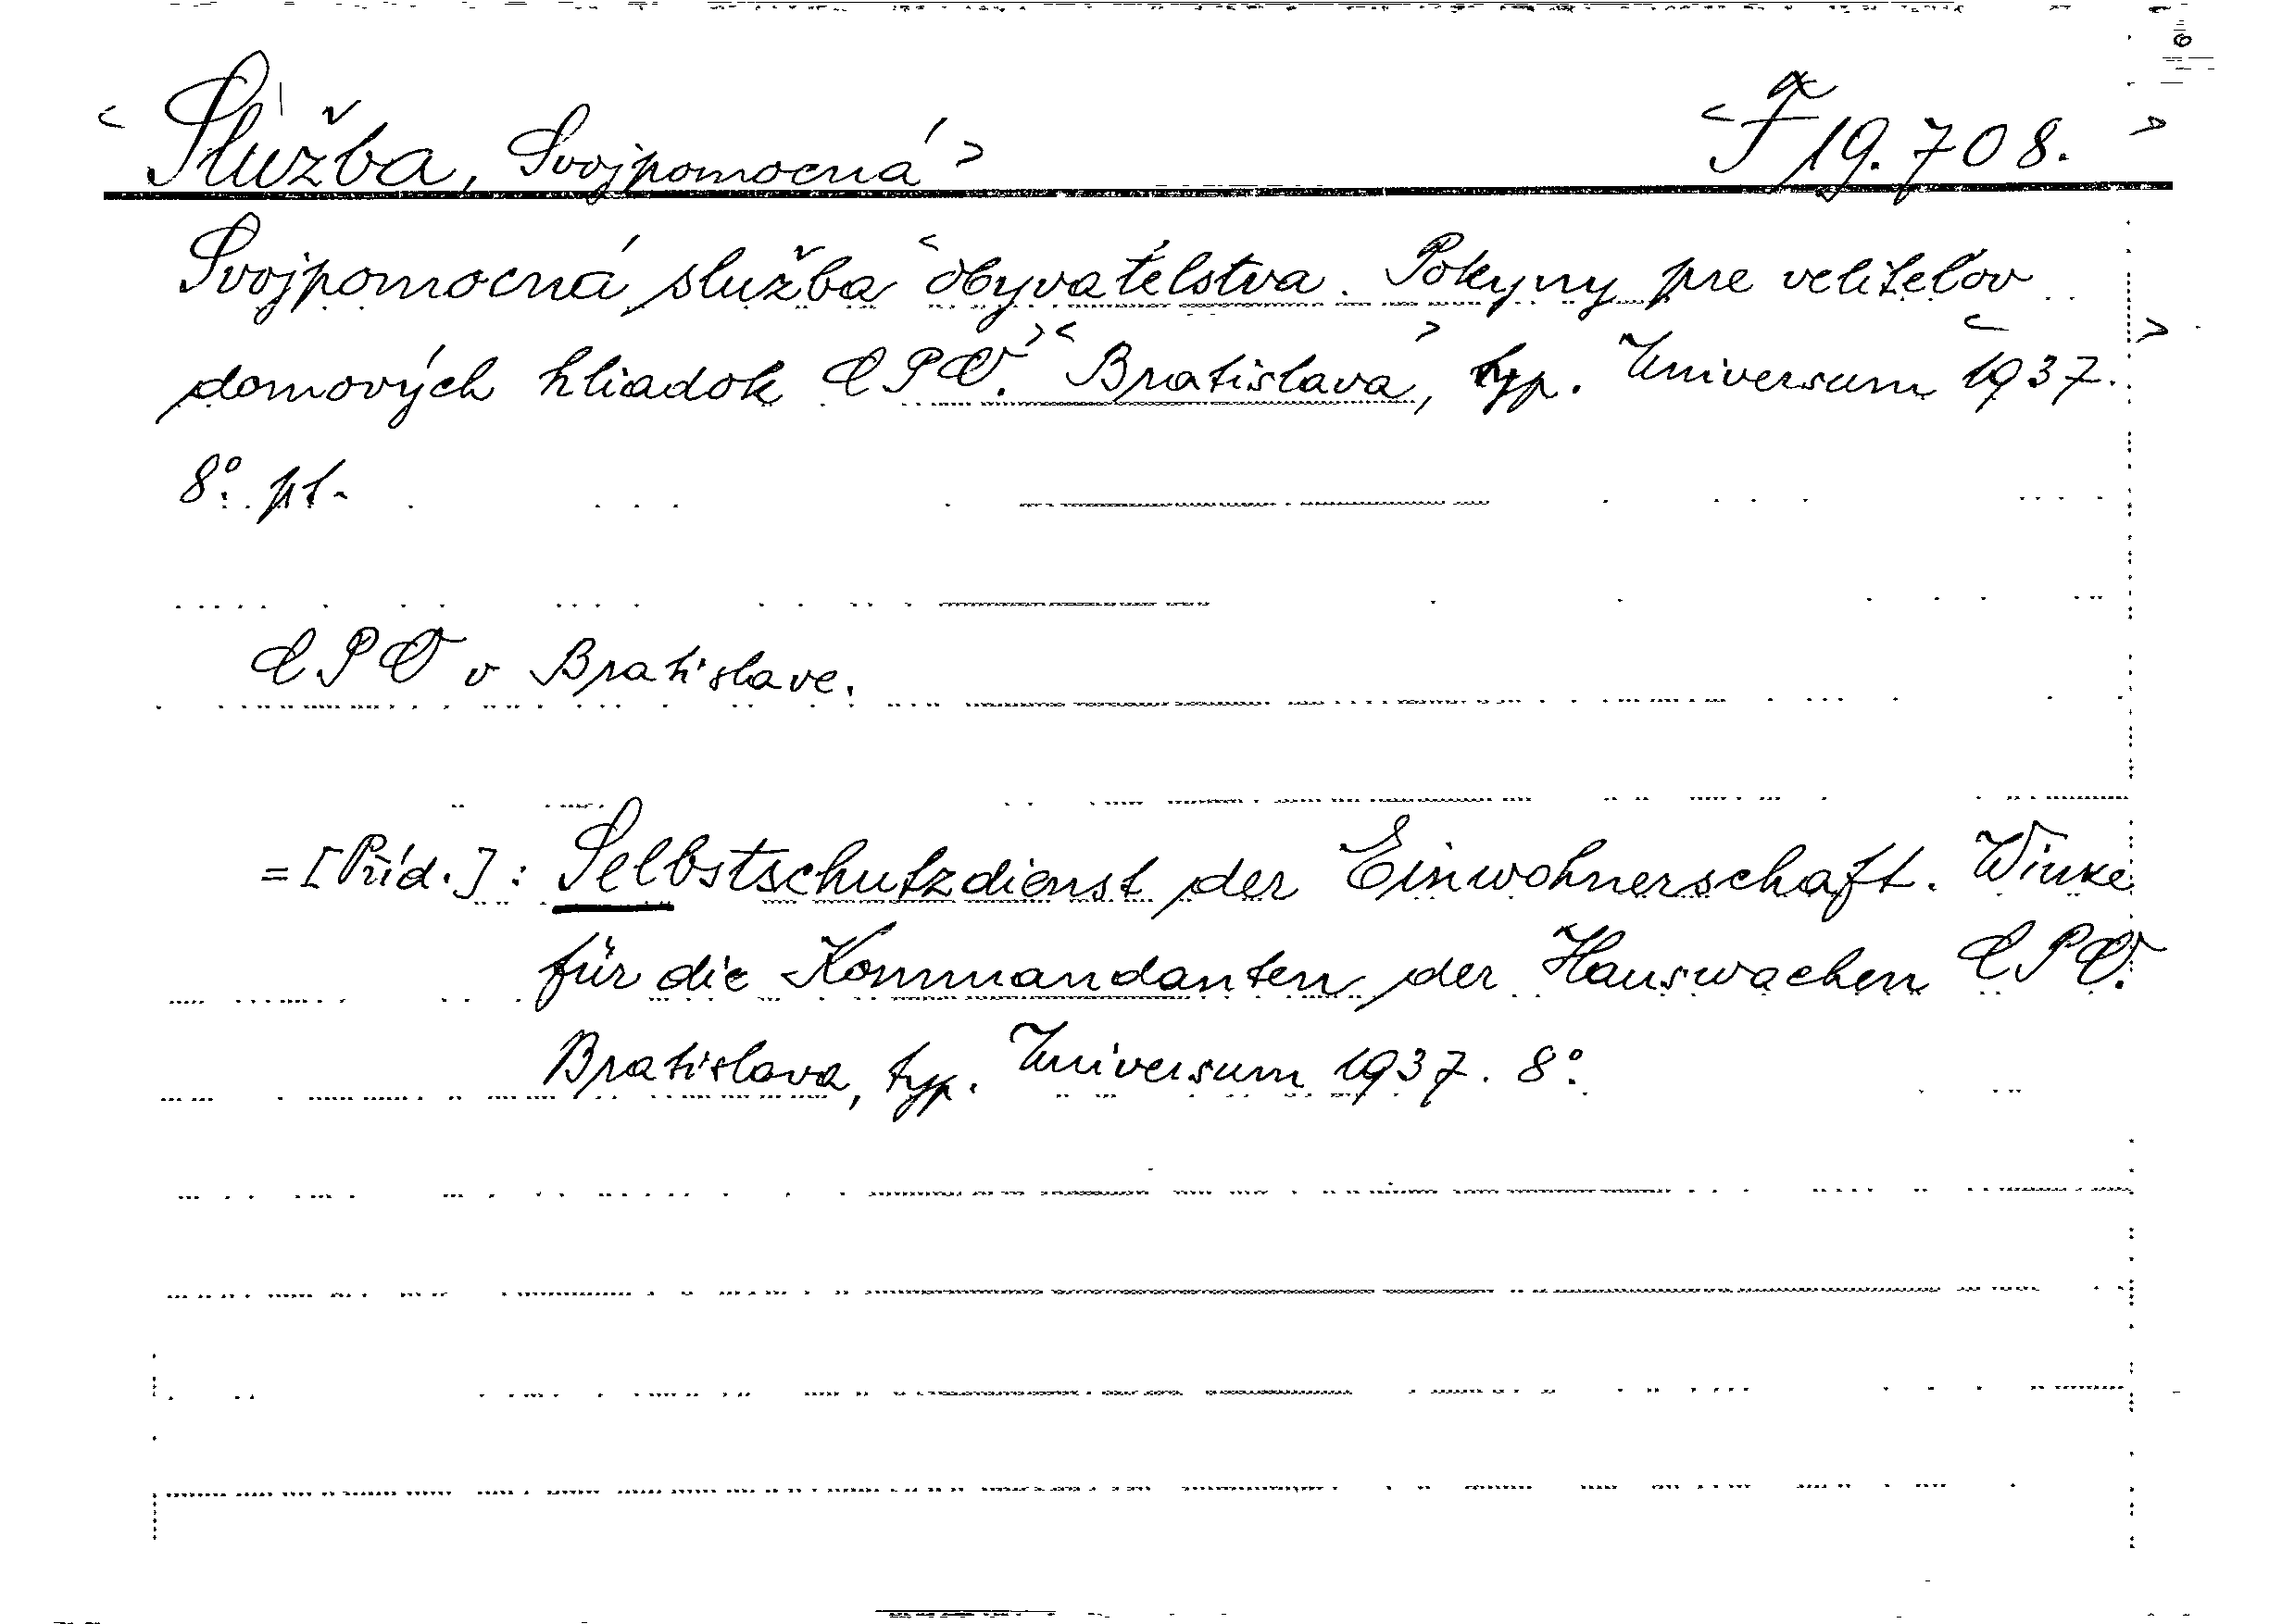 < Služba, Svojpomocná > < F 19.708. >
Svojpomocná služba < obyvateľstva. Pokyny pre veliteľov
domových hliadok CPO. > < Bratislava >, typ. Universum < 1937. >
8°. pt.
CPO v Bratislave.
= [Příd.] : Selbstschutzdienst der Einwohnerschaft. Winke
für die Kommandanten der Hauswachen CPO.
Bratislava, typ. Universum 1937. 8°.